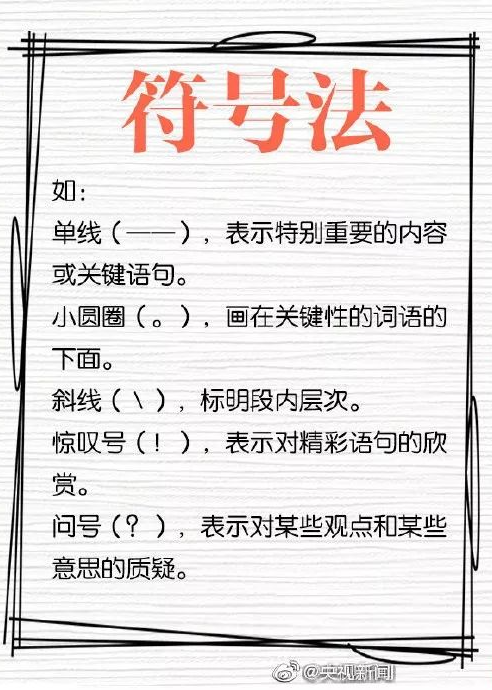 符号法
如：
单线（——），表示特别重要的内容
或关键语句。
小圆圈（。），画在关键性的词语的
下面。
斜线（\），标明段内层次。
惊叹号（！），表示对精彩语句的欣
赏。
问号（？），表示对某些观点和某些
意思的质疑。
@央视新闻